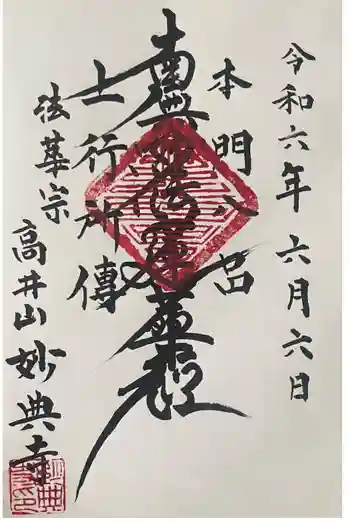 令和六年六月六日
本門八品
南無妙法蓮華經
上行所傳
法華宗
高井山妙典寺